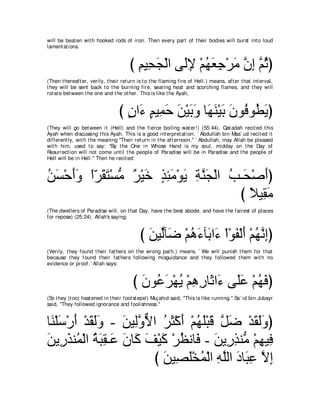 will be beaten with hooked rods of iron. Then every part of their bodies will burst into loud
lamentations.
﴿ثُمَّ إِنَّ مَرْجِعَهُمْ لإِلَى الْجَحِيمِ ﴾
(Then thereafter, verily, their return is to the flaming fire of Hell.) means, after that interval,
they will be sent back to the burning fire, searing heat and scorching flames, and they will
rotate between the one and the other. This is like the Ayah,
﴿يَطُوفُونَ بَيْنَهَا وَبَيْنَ حَمِيمٍ ءَانٍ ﴾
(They will go between it (Hell) and the fierce boiling water!) (55:44). Qatadah recited this
Ayah when discussing this Ayah. This is a good interpretation. `Abdullah bin Mas`ud recited it
differently, with the meaning "Their return in the afternoon." `Abdullah, may Allah be pleased
with him, used to say: "By the One in Whose Hand is my soul, midday on the Day of
Resurrection will not come until the people of Paradise will be in Paradise and the people of
Hell will be in Hell." Then he recited:
﴿أَصْحَـبُ الْجَنَّةِ يَوْمَئِذٍ خَيْرٌ مُّسْتَقَرّاً وَأَحْسَنُ
مَقِيلاً ﴾
(The dwellers of Paradise will, on that Day, have the best abode, and have the fairest of places
for repose) (25:24). Allah's saying;
﴿إِنَّهُمْ أَلْفَوْاْ ءَابَآءَهُمْ ضَآلِّينَ ﴾
(Verily, they found their fathers on the wrong path;) means, `We will punish them for that
because they found their fathers following misguidance and they followed them with no
evidence or proof.' Allah says:
﴿فَهُمْ عَلَى ءَاثَارِهِمْ يُهْرَعُونَ ﴾
(So they (too) hastened in their footsteps!) Mujahid said, "This is like running." Sa`id bin Jubayr
said, "They followed ignorance and foolishness."
﴿وَلَقَدْ ضَلَّ قَبْلَهُمْ أَكْثَرُ الاٌّوَّلِينَ - وَلَقَدْ أَرْسَلْنَا
فِيهِمْ مُّنذِرِينَ - فَانظُرْ كَيْفَ كَانَ عَـقِبَةُ الْمُنذَرِينَ
إِلاَّ عِبَادَ اللَّهِ الْمُخْلَصِينَ ﴾